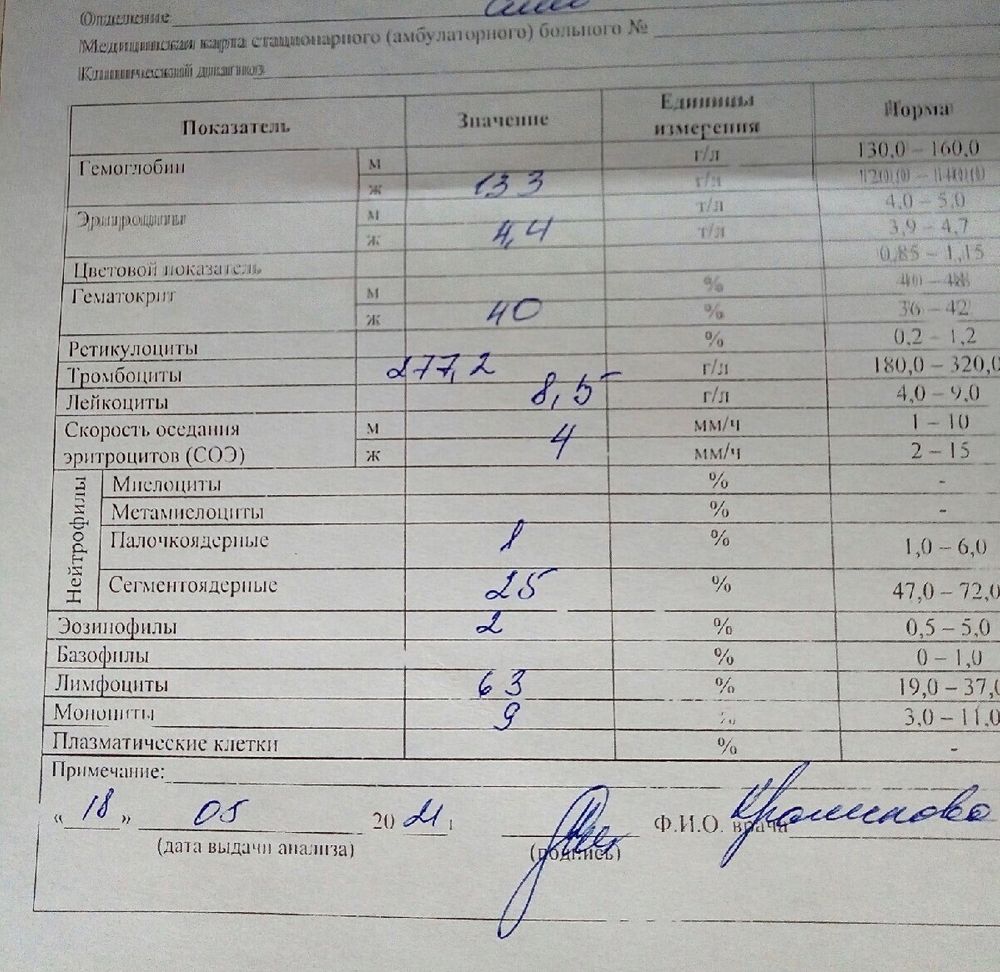 Отделение
Медицинская карта стационарного (амбулаторного) больного №
Клинический диагноз
Показатель Значение Единицы измерения Норма
Гемоглобин м г/л 130,0 – 160,0
ж 133 г/л 120,0 – 140,0
Эритроциты м т/л 4,0 – 5,0
ж 4,4 т/л 3,9 – 4,7
Цветовой показатель 0,85 – 1,15
Гематокрит м % 40 – 48
ж 40 % 36 – 42
Ретикулоциты % 0,2 – 1,2
Тромбоциты 277,2 г/л 180,0 – 320,0
Лейкоциты 8,5 г/л 4,0 – 9,0
Скорость оседания м 4 мм/ч 1 – 10
эритроцитов (СОЭ) ж мм/ч 2 – 15
Нейтрофилы
Миелоциты % -
Метамиелоциты % -
Палочкоядерные 1 % 1,0 – 6,0
Сегментоядерные 25 % 47,0 – 72,0
Эозинофилы 2 % 0,5 – 5,0
Базофилы % 0 – 1,0
Лимфоциты 63 % 19,0 – 37,0
Моноциты 9 % 3,0 – 11,0
Плазматические клетки % -
Примечание:
« 18 » 05 2021 Ф.И.О. врача
(дата выдачи анализа) (подпись)